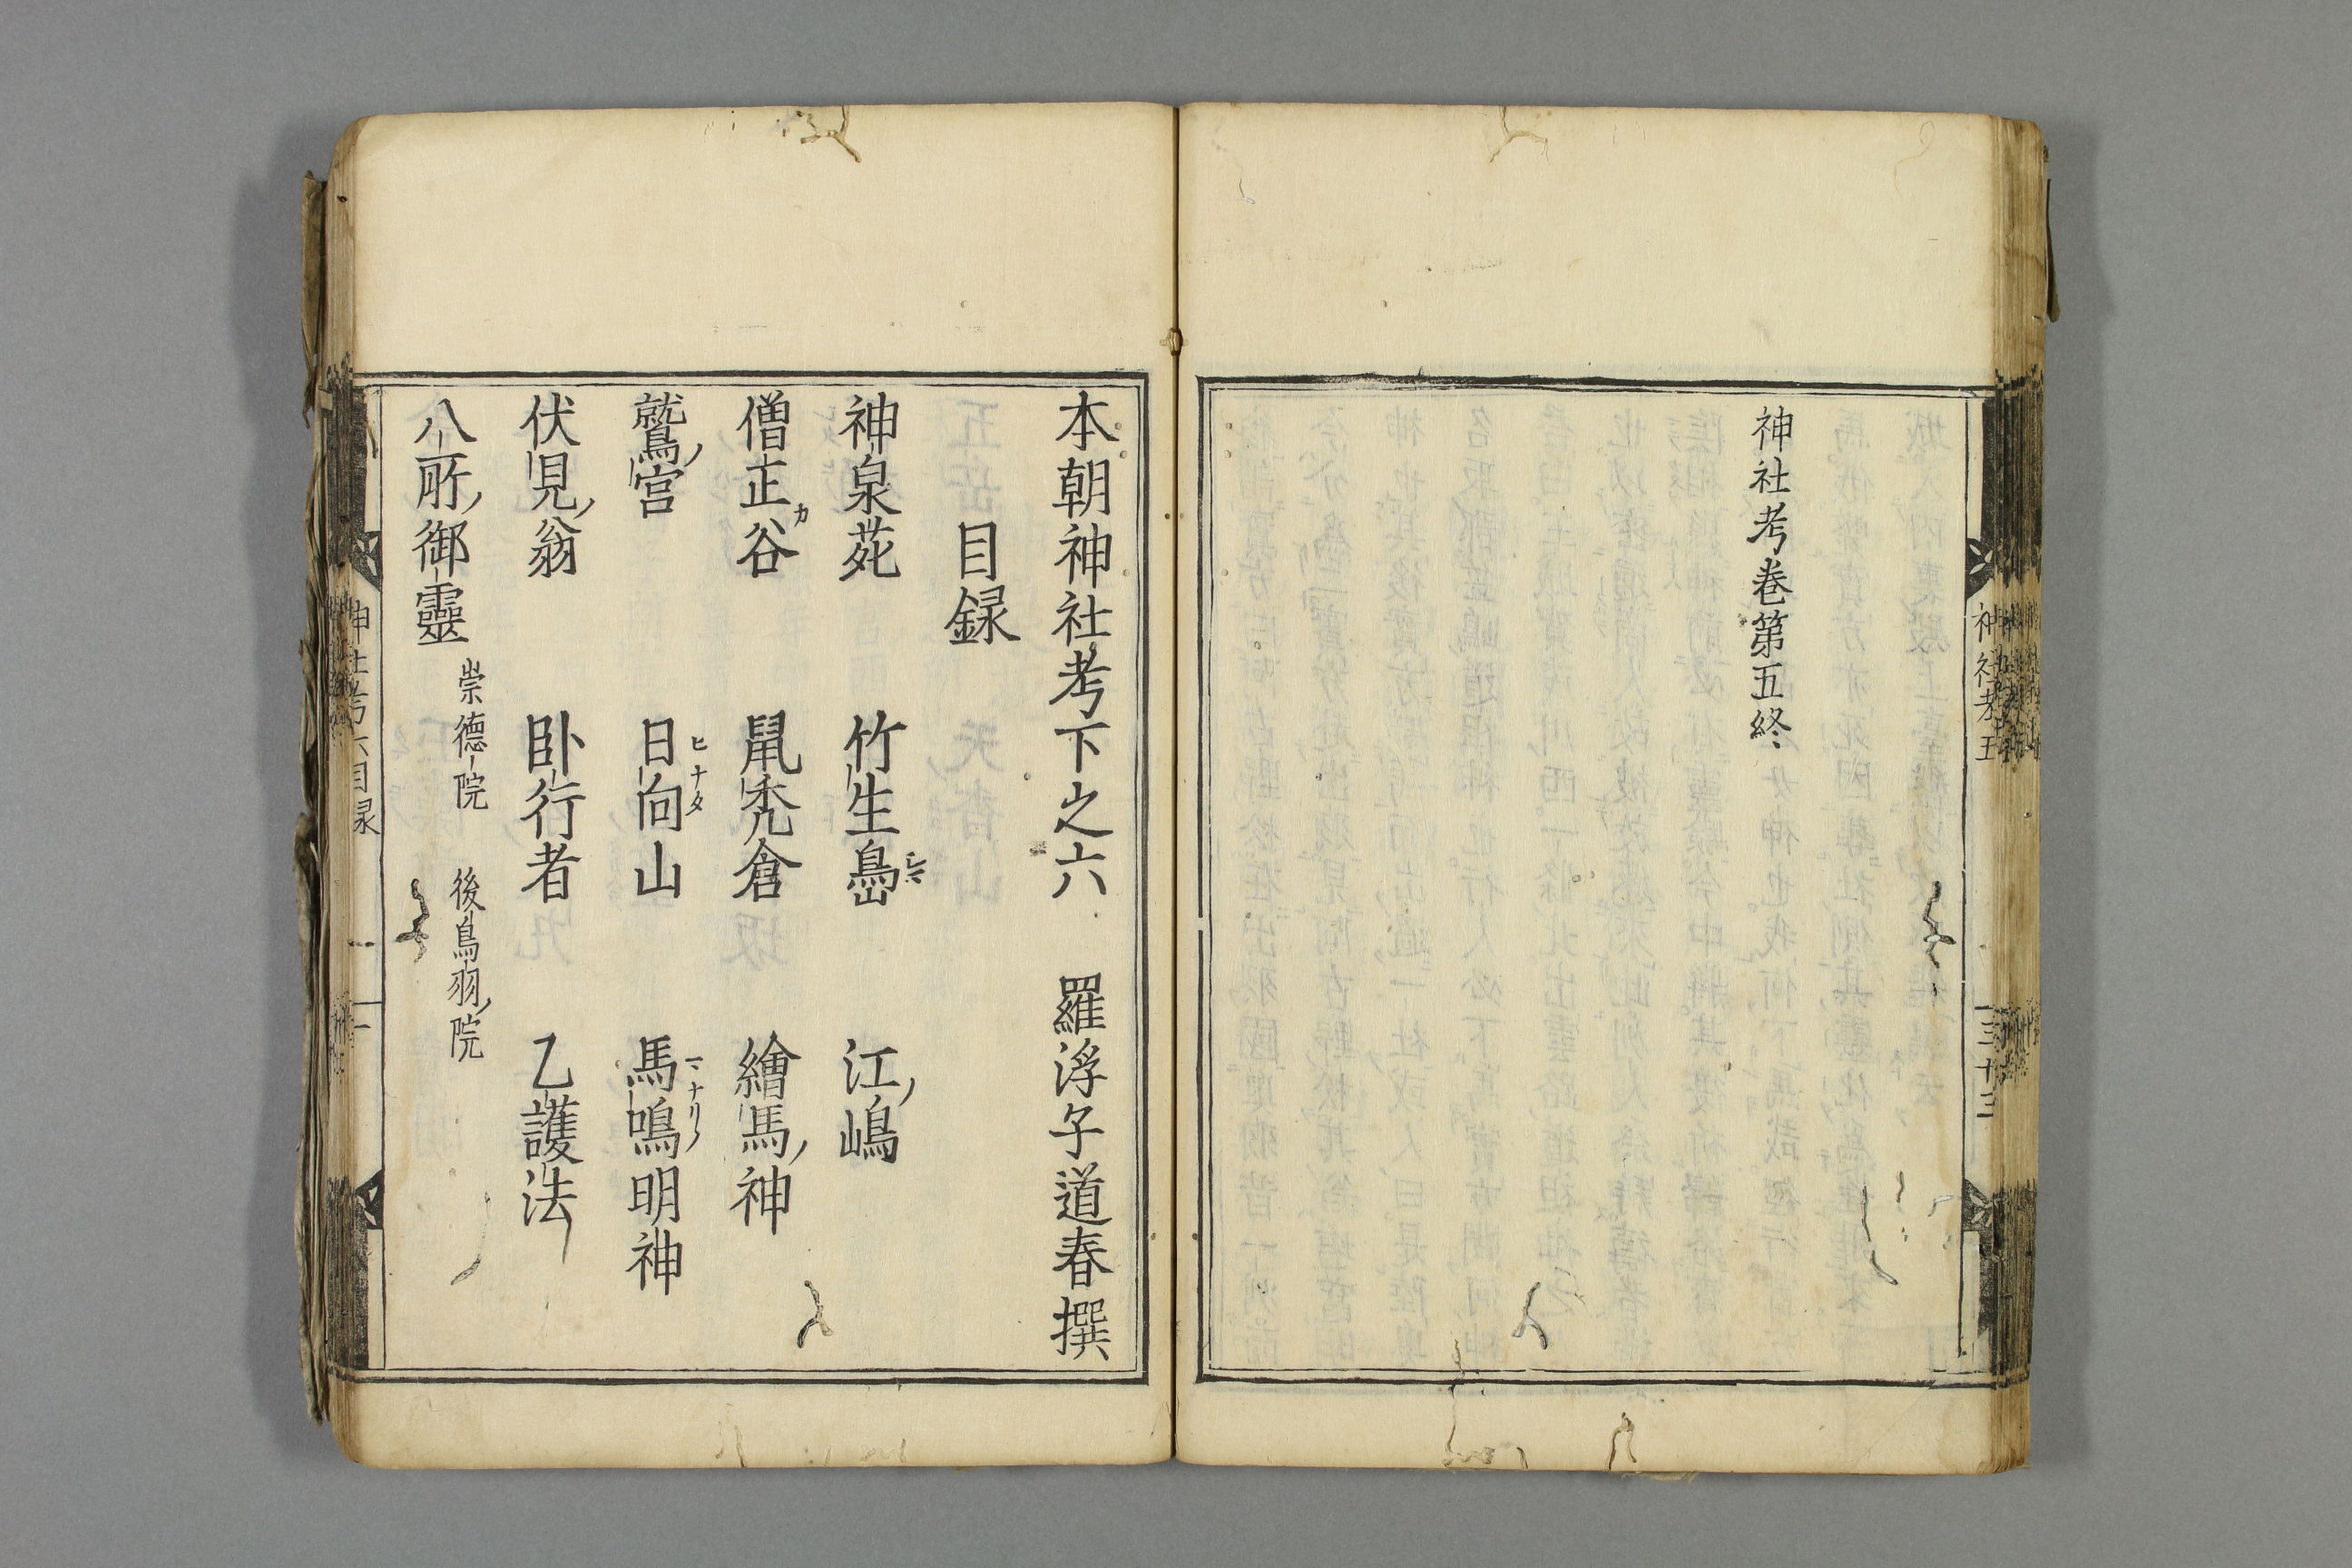 神社考卷第五終
神社考五
三十三
本朝神社考下之六 羅浮子道春撰
目録
神泉苑 竹生嶌 江ノ嶋
僧正カ谷 鼠禿倉 繪馬ノ神
鷲ノ宮 日向山 馬鳴明神
ヒナタ
伏見ノ翁 卧行者 乙護法
八所ノ御靈 崇德院 後鳥羽ノ院